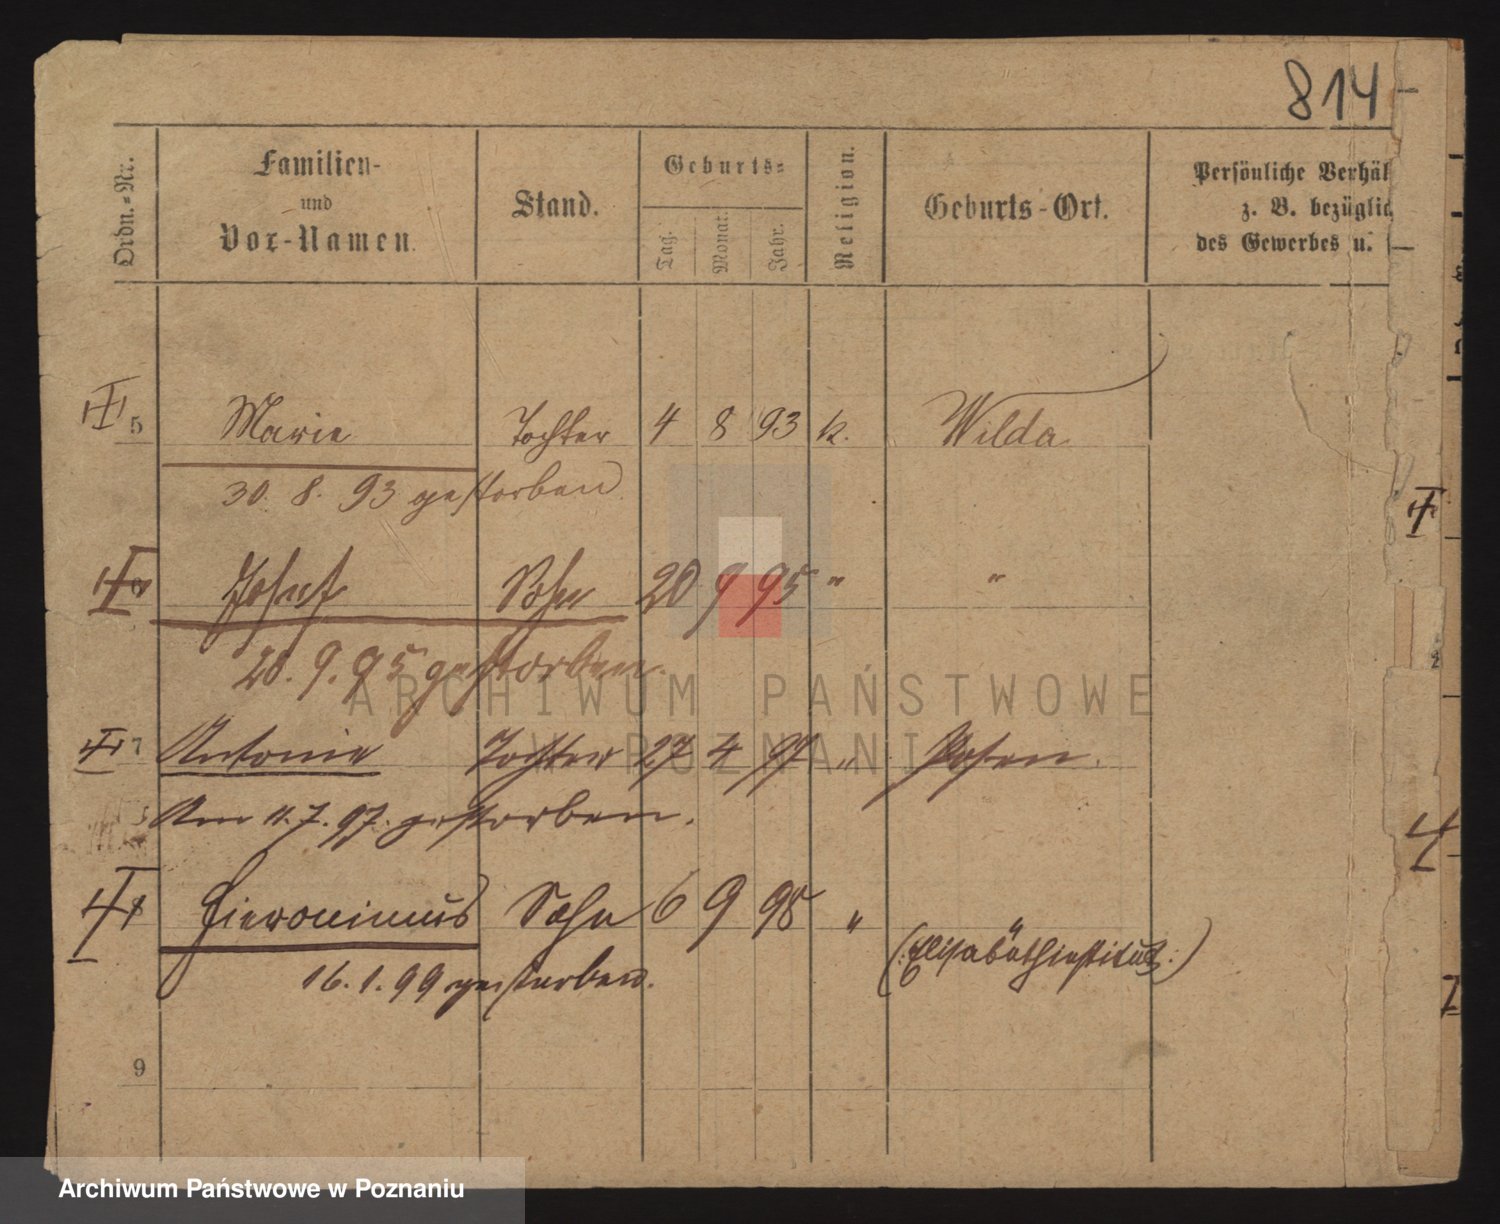 814
Ordn.-Nr.
Familien-
und
Vor-Namen.
Stand.
Geburts-
Tag.
Monat.
Jahr.
Religion.
Geburts-Ort.
Persönliche Verhäl
z. B. bezüglic
des Gewerbes u.
5 Marie Tochter 4 8 93 k. Wilda
30. 8. 93 gestorben
6 Josef Sohn 20 9 95 " "
28. 9. 95 gestorben.
ARCHIWUM PAŃSTWOWE
W POZNANIU
7 Antonie Tochter 27 4 97 " Posen.
Am 11. 7. 97. gestorben.
8 Hieronimus Sohn 6 9 98 "
(Elisabethinstitut.)
16. 1. 99 gestorben.
9
Archiwum Państwowe w Poznaniu